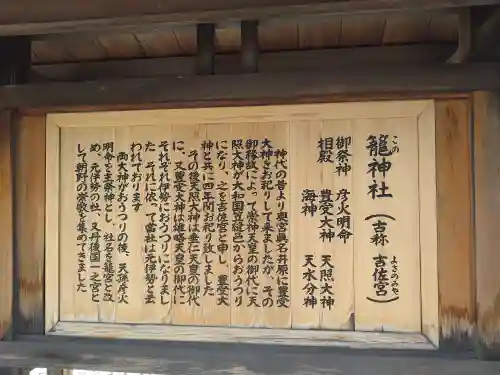 籠神社(古称 吉佐宮)
この
よさのみや
御祭神 彦火明命 天照大神
相殿 豊受大神
海神 天水分神
神代の昔より奥宮眞名井原に豊受
大神をお祀りして来ましたが、その
御縁故によって崇神天皇の御代に天
照大神が大和国笠縫邑からおうつり
になり、之を吉佐宮と申し、豊受大
神と共に四年間お祀り致しました
その後天照大神は垂仁天皇の御代
に、又豊受大神は雄略天皇の御代に
それぞれ伊勢におうつりになりまし
た それに依って當社は元伊勢と云
われております
両大神がおうつりの後、天孫彦火
明命を主祭神とし、社名を籠宮と改
め、元伊勢の社、又丹後国一之宮と
して朝野の崇敬を集めてきました